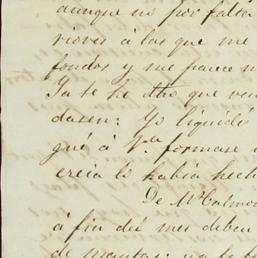 aunque no por falta
riores á las que me
fondos y me parece
Ya te he dho que ven
dasen: Yo liquidé
gué á V.ª formase
creia lo había hech
De Mr Calmo
á fin del mes deben
de mantas: ya te